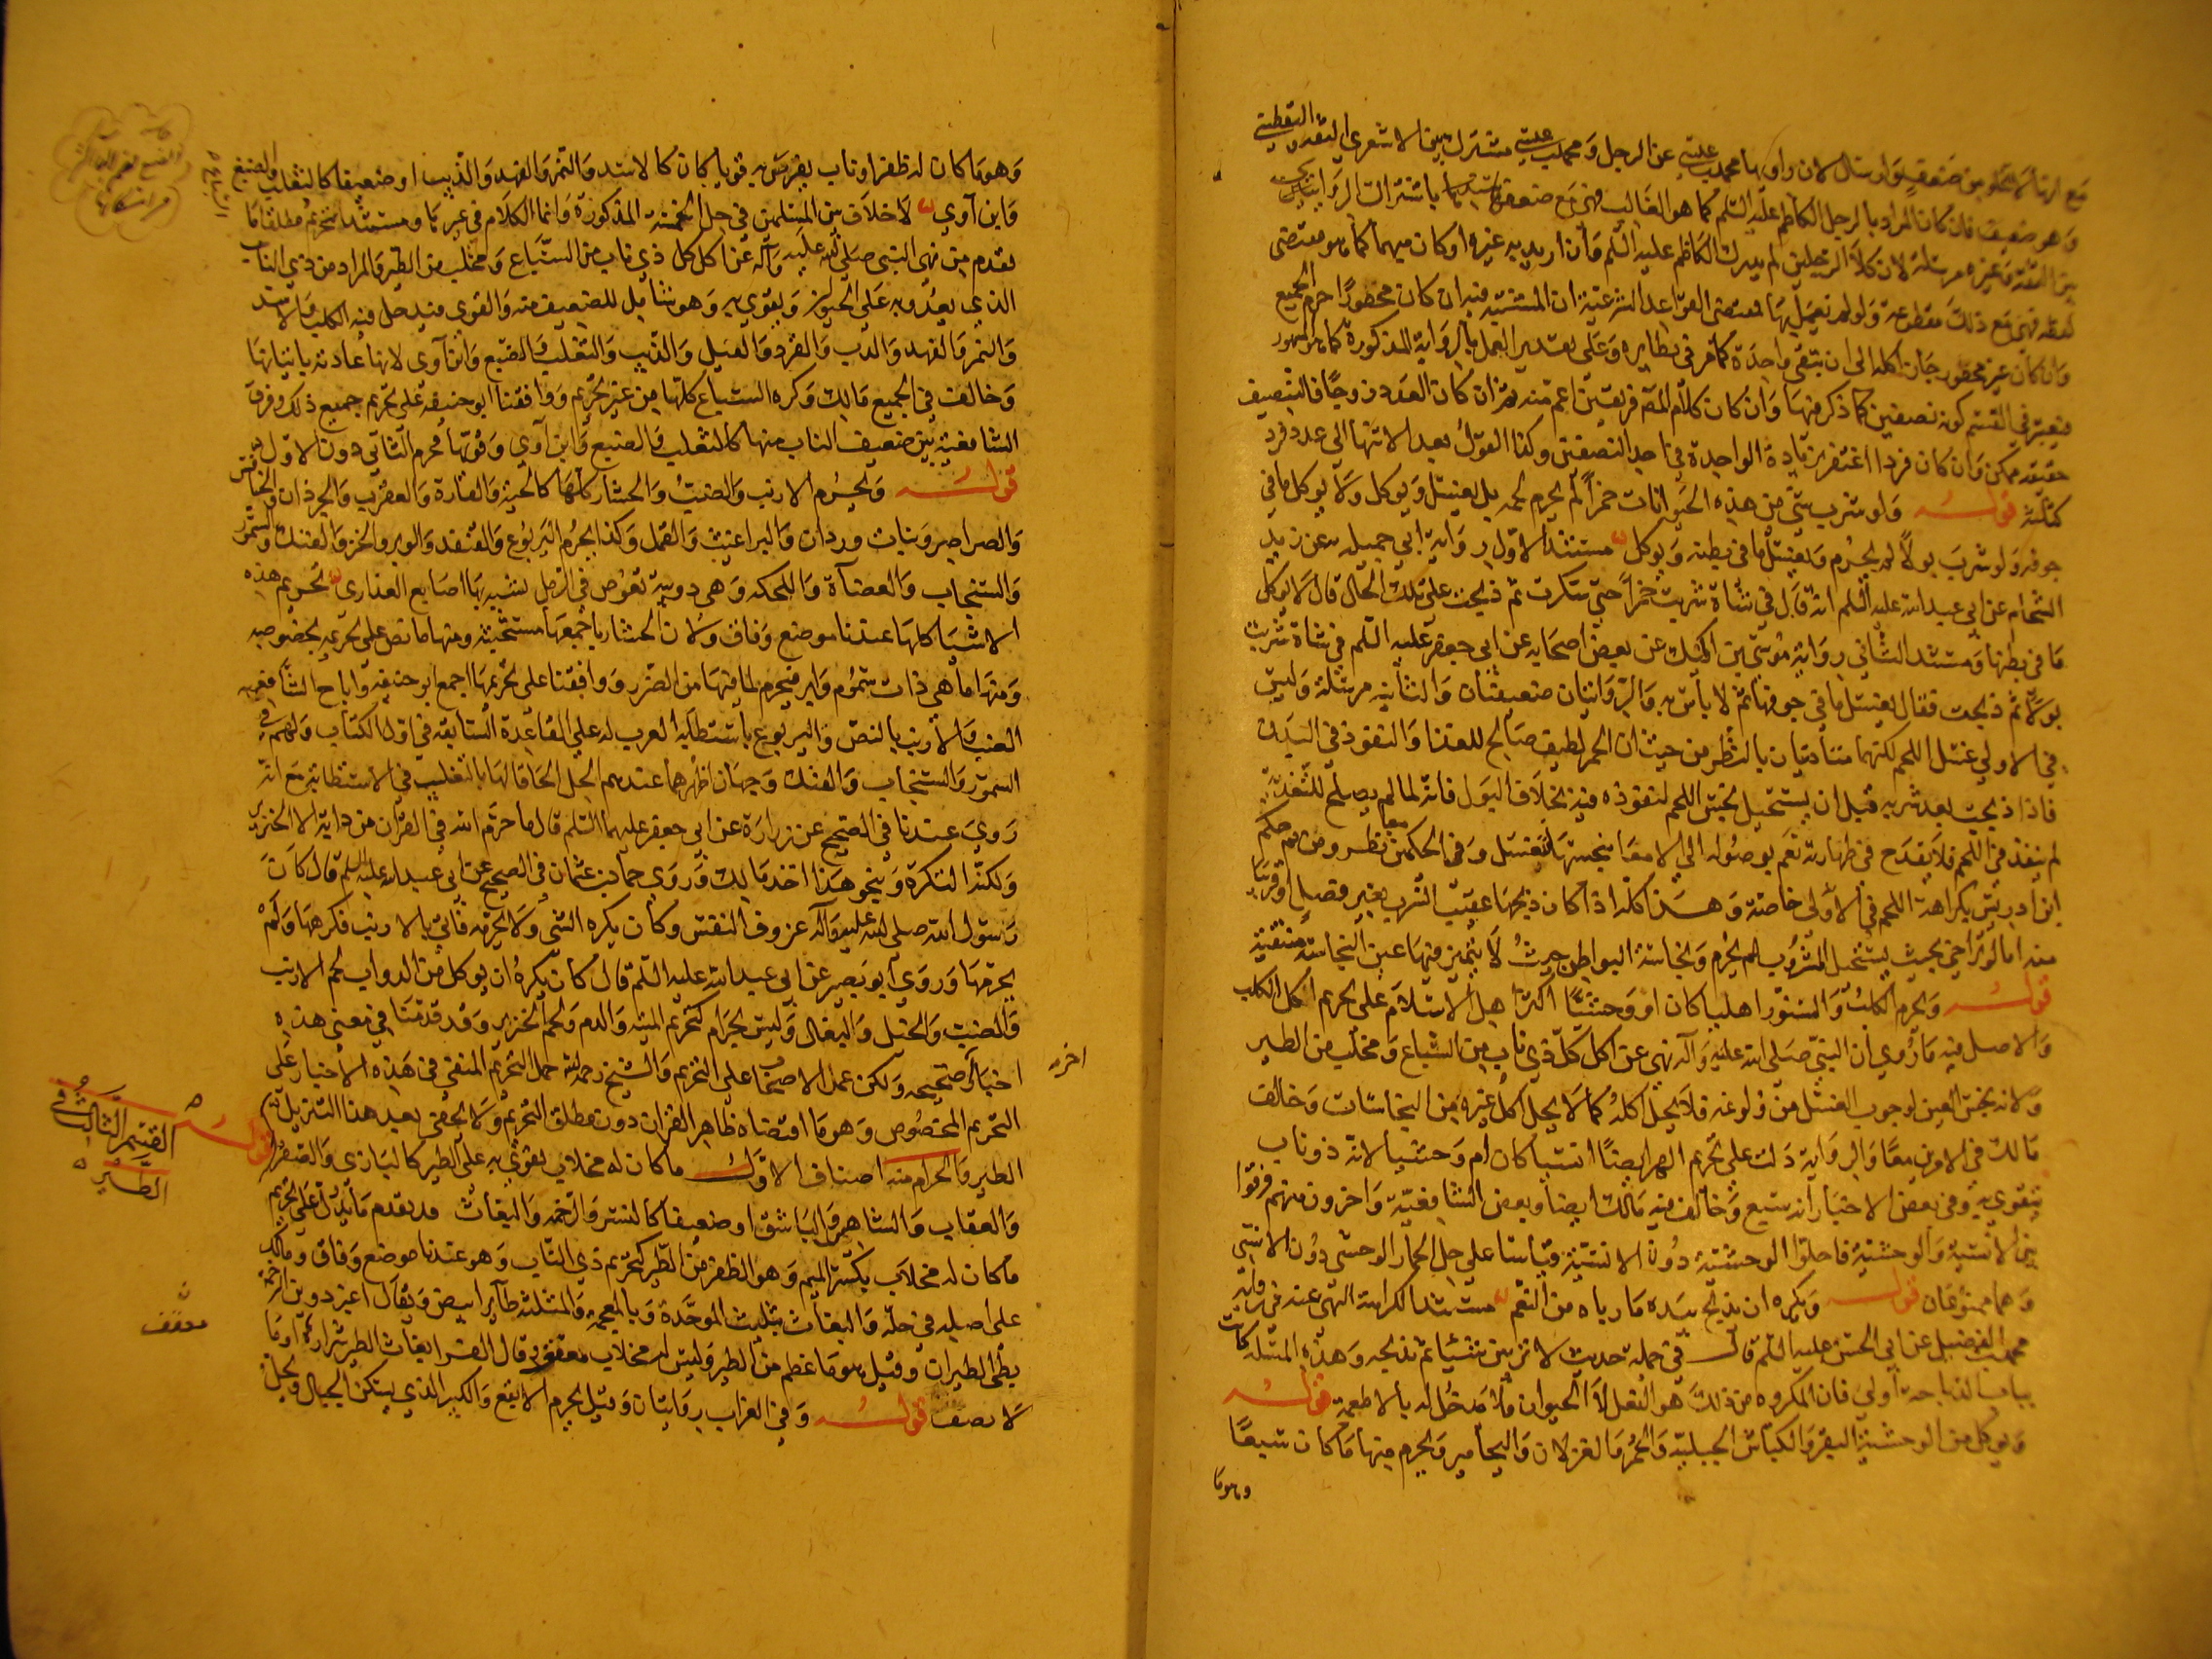 مع انها لا تخلو من ضعف وارسال لان راويها محمد بن عيسى عن الرجل ومحمد بن عيسى مشترك بين الاشعري الثقة واليقطيني
وهو ضعيف فان كان المراد بالرجل الكاظم عليه السلم كما هو الغالب فهي مع ضعفها باشتراك الراوي
بين الثقة وغيره مرسلة لان كلا الرجلين لم يدرك الكاظم عليه السلم وان اريد به غيره او كان مبهما كما هو مقتضى
لفظه فهي مع ذلك مقطوعة ولو لم نعمل بها فمقتضى القواعد الشرعية ان المشتبه فيه ان كان محصورا حرم الجميع
وان كان غير محصور جاز اكله الى ان تبقى واحدة كما مر في نظايره وعلى تقدير العمل بالرواية المذكورة كما هو المشهور
فيعتبر في القسم كونه نصفين كما ذكر فيها وان كان كلام المص فريقين اعم منه ثم ان كان العدد زوجا فالتنصيف
حقيقة ممكن وان كان فردا اغتفر زيادة الواحدة في احد النصفين وكذا القول بعد الانتهاء الى عدد فرد
كثلثة قوله ولو شرب شي من هذه الحيوانات خمرا لم يحرم لحمه بل يغسل ويوكل ولا يوكل ما في
جوفه ولو شرب بولا لم يحرم ويغسل ما في بطنه ويوكل مستند الاول رواية ابي جميلة عن زيد
الشحام عن ابي عبد الله عليه السلم انه قال في شاة شربت خمرا حتى سكرت ثم ذبحت على تلك الحال قال لا يوكل
ما في بطنها ومستند الثاني رواية موسى بن اكيل عن بعض اصحابه عن ابي جعفر عليه السلم في شاة شربت
بولا ثم ذبحت فقال يغسل ما في جوفها ثم لا باس به والروايتان ضعيفتان والثانية مرسلة وليس
في الاولى غسل اللحم لكنهما متاديان بالنظر من حيث ان الخمر لطيف صالح للغذا والنفوذ في البدن
فاذا ذبحت بعد شربه قبل ان يستحيل نجس اللحم لنفوذه فيه بخلاف البول فانه لما لم يصلح للتغذية
لم ينفذ في اللحم فلا يقدح في طهارته نعم بوصوله الى الامعا ينجسها فتغسل وفي الحكمين معا نظر ومن ثم حكم
ابن ادريس بكراهة اللحم في الاولى خاصة وهذا كله اذا كان ذبحها عقيب الشرب بغير فصل او قريبا
منه اما لو تراخى بحيث يستحيل المشروب لم يحرم ونجاسة البواطن حيث لا يتميز فيها عين النجاسة منتفية
قوله ويحرم الكلب والسنور اهليا كان او وحشيا اكثر اهل الاسلام على تحريم اكل الكلب
والاصل فيه ما روي ان النبي صلى الله عليه وآله نهى عن اكل كل ذي ناب من السباع ومخلب من الطير
ولانه نجس العين لوجوب الغسل من ولوغه فلا يحل اكله كما لا يحل اكل غيره من النجاسات وخالف
مالك في الامرين معا والرواية دلت على تحريم الهر ايضا انسيا كان ام وحشيا لانه ذو ناب
يتقوى به وفي بعض الاخبار انه سبع وخالف فيه مالك ايضا وبعض الشافعية واخرون منهم فرقوا
بين الانسية والوحشية فاحلوا الوحشية دون الانسية قياسا على حل الحمار الوحشي دون الانسي
وهما ممنوعان قوله ويكره ان يذبح بيده ما رباه من النعم مستند الكراهة النهي عنه في رواية
محمد بن الفضيل عن ابي الحسن عليه السلم قال في جملة حديث لا تربين شيئا ثم تذبحه وهذه المسئلة كانت
بباب الذباحة اولى فان المكروه من ذلك هو الفعل لا الحيوان فلا مدخل له بالاطعمة قوله
ويوكل من الوحشية البقر والكباش الجبلية والحمر والغزلان واليحامير ويحرم منها ما كان سبعا
وهو ما
وهو ما كان له ظفر او ناب يفرس به قويا كان كالاسد والنمر والفهد والذيب او ضعيفا كالثعلب والضبع
وابن آوي لا خلاف بين المسلمين في حل الخمسة المذكورة وانما الكلام في غيرها ومستند تحريم مطلقا ما
تقدم من نهي النبي صلى الله عليه وآله عن اكل كل ذي ناب من السباع ومخلب من الطير والمراد من ذي الناب
الذي يعدو به على الحيوان ويقوى به وهو شامل للضعيف منه والقوي فيدخل فيه الكلب والاسد
والنمر والفهد والدب والقرد والفيل والذيب والثعلب والضبع وابن آوي لانها عادية بانيابها
وخالف في الجميع مالك وكره السباع كلها من غير تحريم ووافقنا ابو حنيفة على تحريم جميع ذلك وفرق
الشافعية بين ضعيف الناب منها كالثعلب والضبع وابن آوي وقويها فحرم الثاني دون الاول
قوله ويحرم الارنب والضب والحشار كلها كالحية والفارة والعقرب والجرذان والخنافس
والصراصر وبنات وردان والبراغيث والقمل وكذا يحرم اليربوع والقنفذ والوبر والخز والفنك والسمور
والسنجاب والعضاة واللحكة وهي دويبة تغوص في الرمل تشبه بها اصابع العذارى تحريم هذه
الاشيا كلها عندنا موضع وفاق ولان الحشار باجمعها مستخبثة ومنها ما نص على تحريمه بخصوصه
ومنها ما هي ذات سموم وابر فيحرم لما فيها من الضرر ووافقنا على تحريمها اجمع ابو حنيفة واباح الشافعي
الضب والارنب بالنص واليربوع باستطابة العرب له على القاعدة السابقة في اول الكتاب ولهم في
السمور والسنجاب والفنك وجهان اظهرهما عندهم الحل الحاقا لها بالثعلب في الاستطابة مع انه
روي عندنا في الصحيح عن زرارة عن ابي جعفر عليهما السلم قال ما حرم الله في القرآن من دابة الا الخنزير
ولكنه النكرة وبنحو هذا اخذ مالك وروى حماد بن عثمان في الصحيح عن ابي عبد الله عليه السلم قال كان
رسول الله صلى الله عليه وآله عزوف النفس وكان يكره الشي ولا يحرمه فاتي بالارنب فكرهها ولم
يحرمها وروى ابو بصير عن ابي عبد الله عليه السلم قال كان يكره ان يوكل من الدواب لحم الارنب
والضب والخيل والبغال وليس بحرام كتحريم الميتة والدم ولحم الخنزير وقد قدمنا في معنى هذه
اخبارا صحيحة ولكن عمل الاصحاب على التحريم والشيخ رحمه الله حمل التحريم المنفي في هذه الاخبار على
اخر
التحريم المخصوص وهو ما اقتضاه ظاهر القران دون مطلق التحريم ولا يخفى بعد هذا التنزيل
قوله القسم الثالث في
الطير
الطير والحرام منه اصناف الاول ما كان له مخلاب يقوى به على الطير كالبازي والصقر
والعقاب والشاهين والباشق او ضعيفا كالنسر والرخمة والبغاث قد تقدم ما يدل على تحريم
ما كان له مخلاب بكسر الميم وهو الظفر من الطير كتحريم ذي الناب وهو عندنا موضع وفاق ومالك
على اصله في حله والبغاث بتثليث الموحدة وبالمعجمة والمثلثة طاير ابيض ويقال اغبر دوين الرخمة
بطي الطيران وقيل هو ما عظم من الطير وليس له مخلاب معقف قال الفرا بغاث الطير شرارها وما
معقف
لا يصف قوله وفي الغراب روايتان وقيل يحرم الابقع والكبير الذي يسكن الجبال ويحل